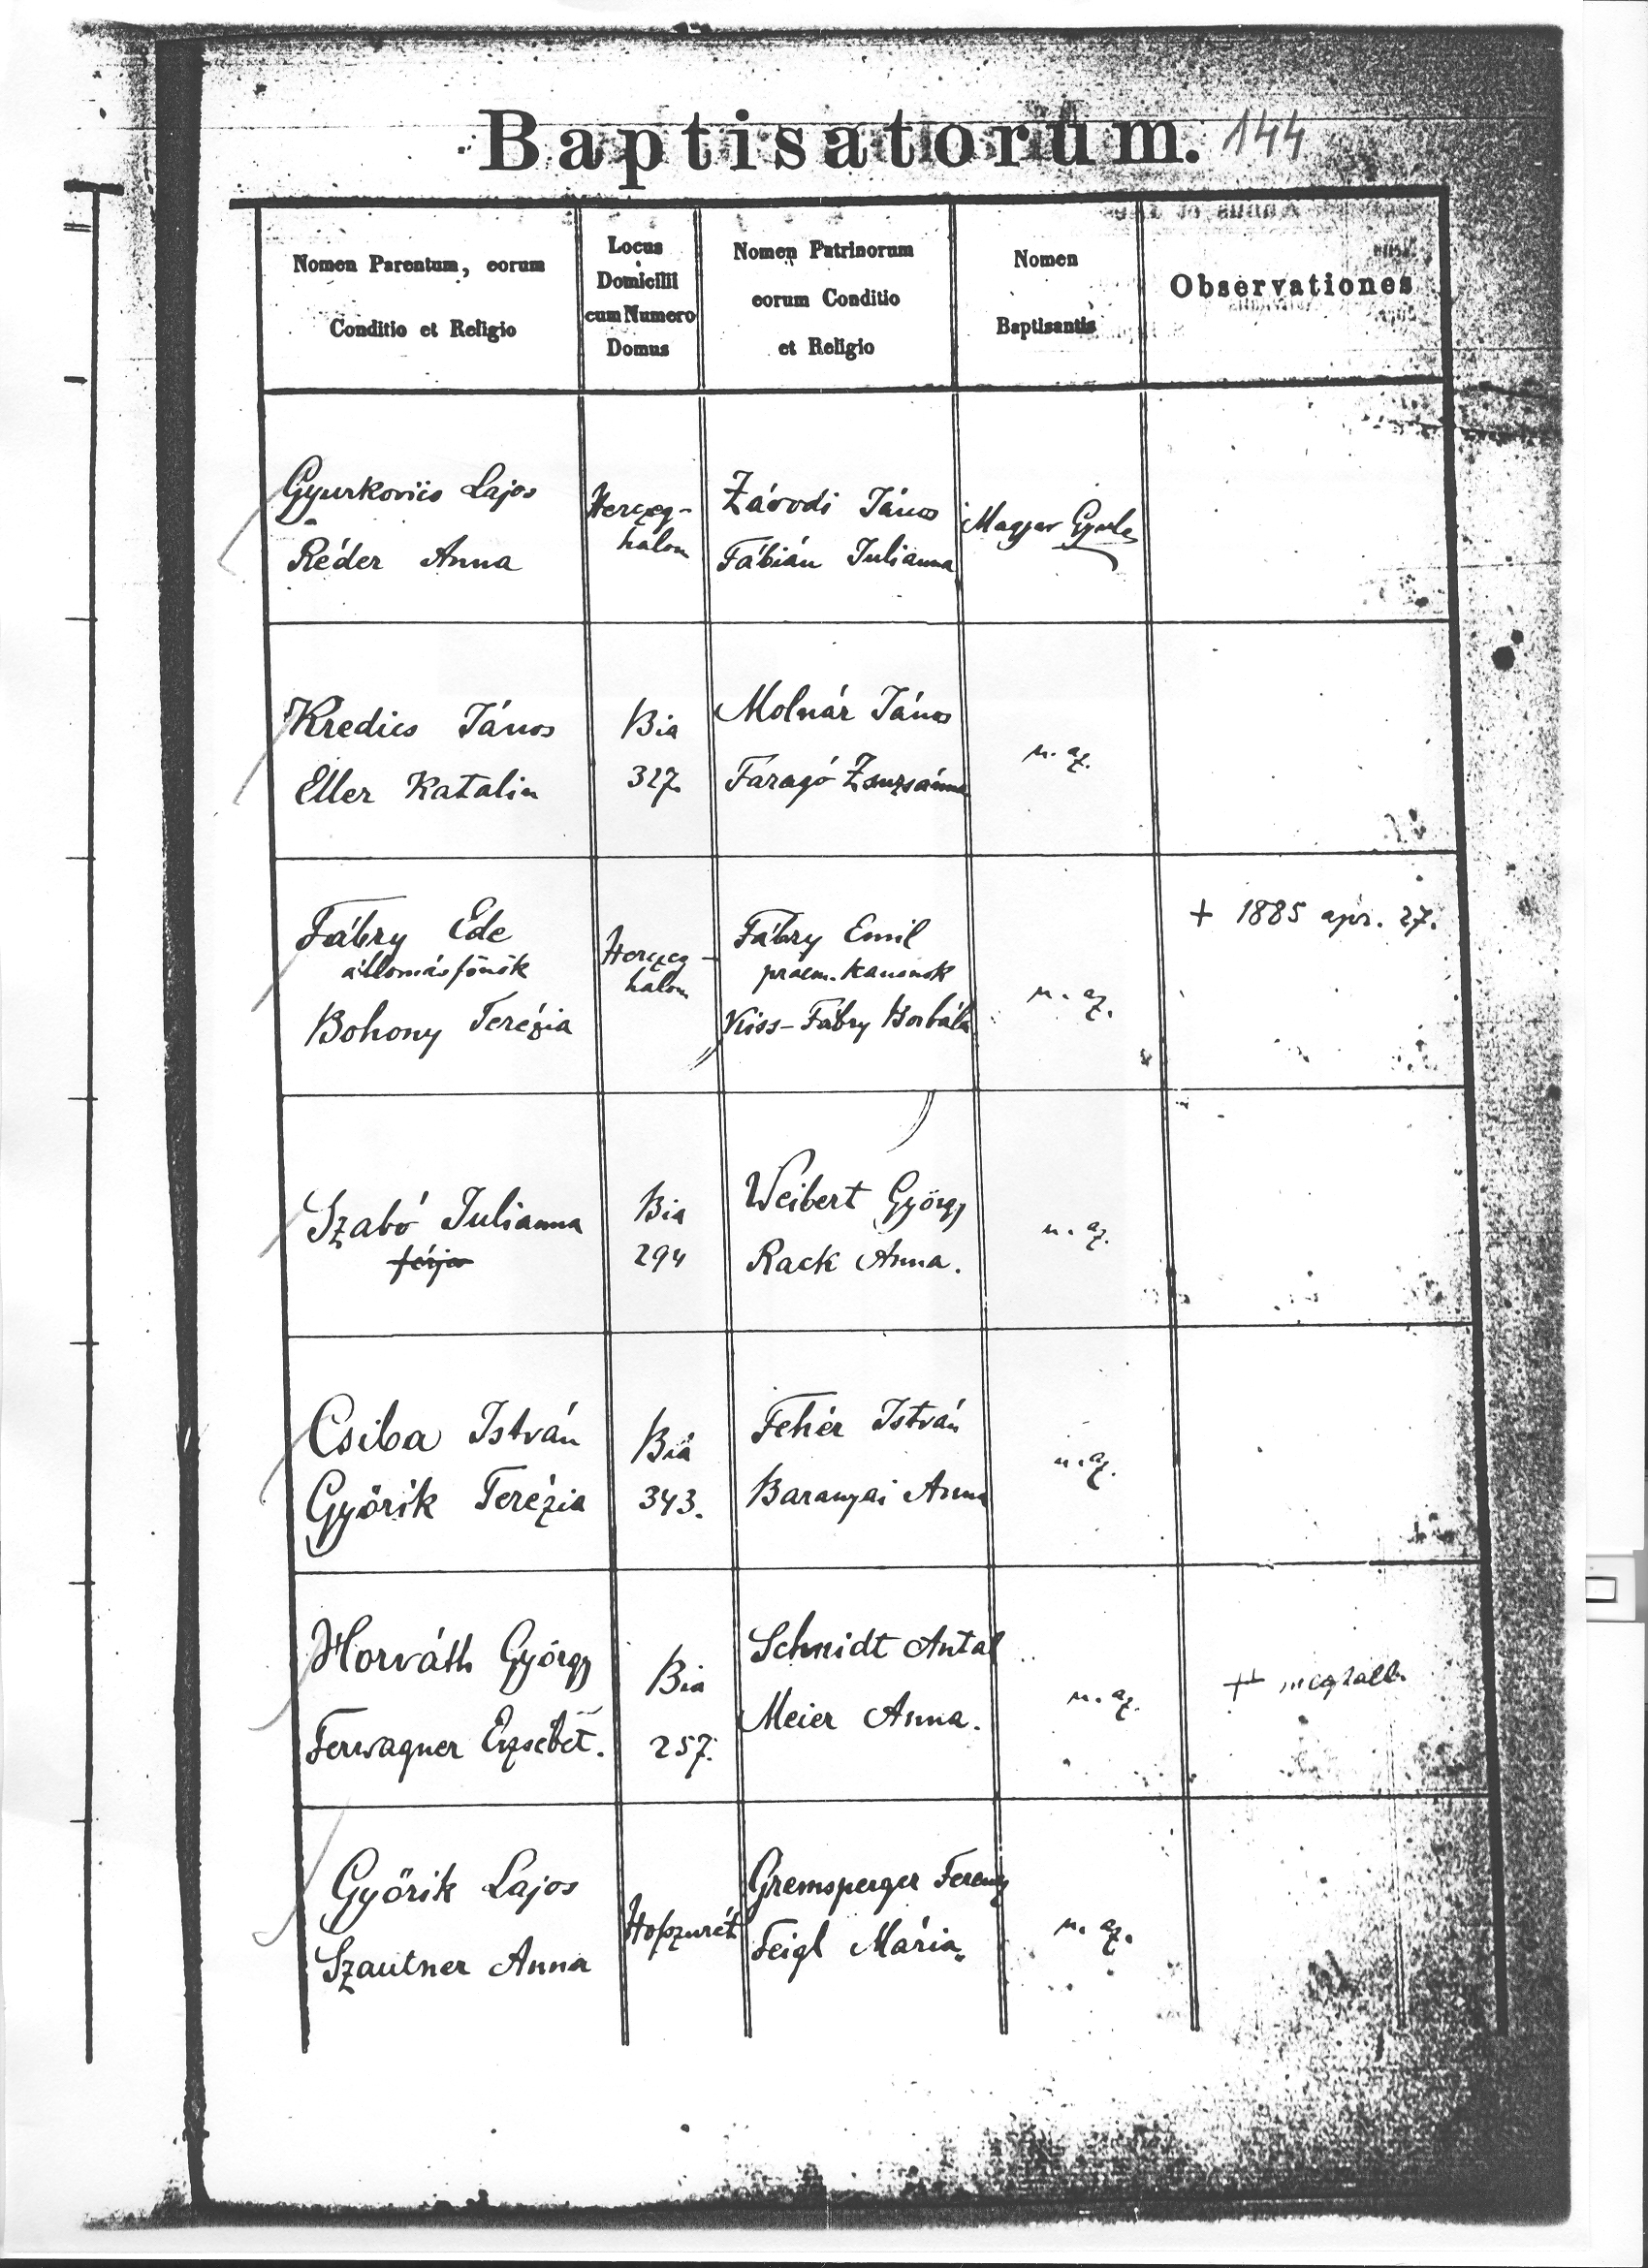 Baptisatorum. 144
Nomen Parentum, eorum
Conditio et Religio
Locus
Domicilii
cum Numero
Domus
Nomen Patrinorum
eorum Conditio
et Religio
Nomen
Baptisantis
Observationes
Gyurkovics Lajos
Réder Anna
Herczeg-
halom
Závodi János
Fábián Julianna
Magyar Gyula
Kredics János
Eller Katalin
Bia
327.
Molnár János
Faragó Zsuzsánna
u. az.
Fábry Ede
állomásfőnök
Bohony Terézia
Herczeg-
halom
Fábry Emil
praem. kanonok
Kiss-Fábry Borbála
u. az.
+ 1885 apr. 27.
Szabó Julianna
férje
Bia
294
Weibert György
Rack Anna.
u. az.
Csiba István
Györik Terézia
Bia
343.
Fehér István
Baranyai Anna
u. az.
Horváth György
Ferwagner Erzsébet.
Bia
257.
Schmidt Antal
Meier Anna.
u. az.
+ meghalt.
Györik Lajos
Szautner Anna
Hoszurét
Gremsperger Ferencz
Feigl Mária.
u. az.